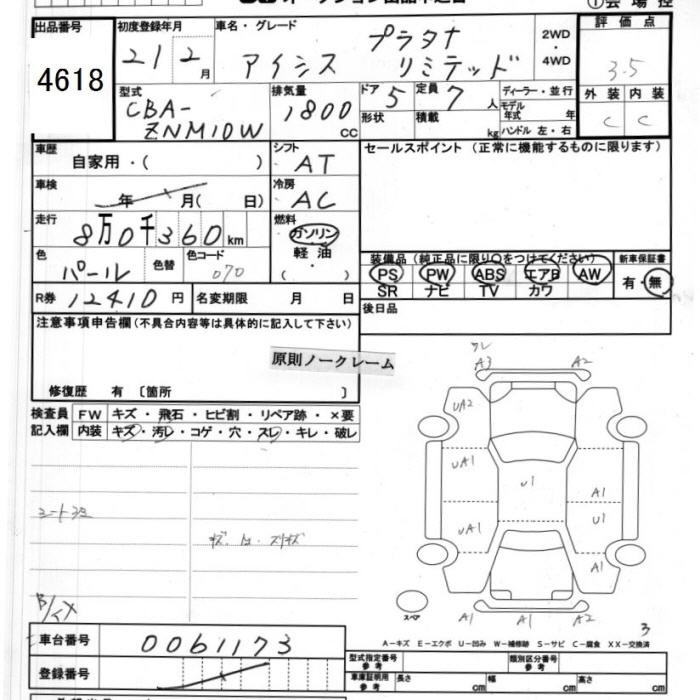 出品番号 初度登録年月 車名・グレード 評価点
4618 21 2月 アイシス プラタナ リミテッド 2WD・4WD 3.5
外装 内装
C C
型式 CBA-ZNM10W 排気量 1800cc ドア 5 定員 7人 ディーラー・並行
形状 積載 kg モデル年式 年
ハンドル 左・右
車歴 自家用・( ) シフト AT セールスポイント (正常に機能するものに限ります)
車検 年 月( 日) 冷房 AC
走行 8万0千360km 燃料 ガソリン
軽油
・( )
色 パール 色替 色コード 070
装備品 (純正品に限り○をつけてください) 新車保証書
PS PW ABS エアB AW 有・無
SR ナビ TV カワ
R券 12410円 名変期限 月 日 後日品
注意事項申告欄(不具合内容等は具体的に記入して下さい)
原則ノークレーム
修復歴 有 〔箇所 〕
検査員 FW キズ・飛石・ヒビ割・リペア跡・×要
記入欄 内装 キズ・汚レ・コゲ・穴・スレ・キレ・破レ
A3 A2
UA2
UA1 U1 A1
UA1 U1
A1
スペア A1 A1 A2
3
A-キズ E-エクボ U-凹み W-補修跡 S-サビ C-腐食 XX-交換済
車台番号 0061173
登録番号
型式指定番号 参考 類別区分番号 参考
車庫証明用 参考 長さ cm 幅 cm 高さ cm